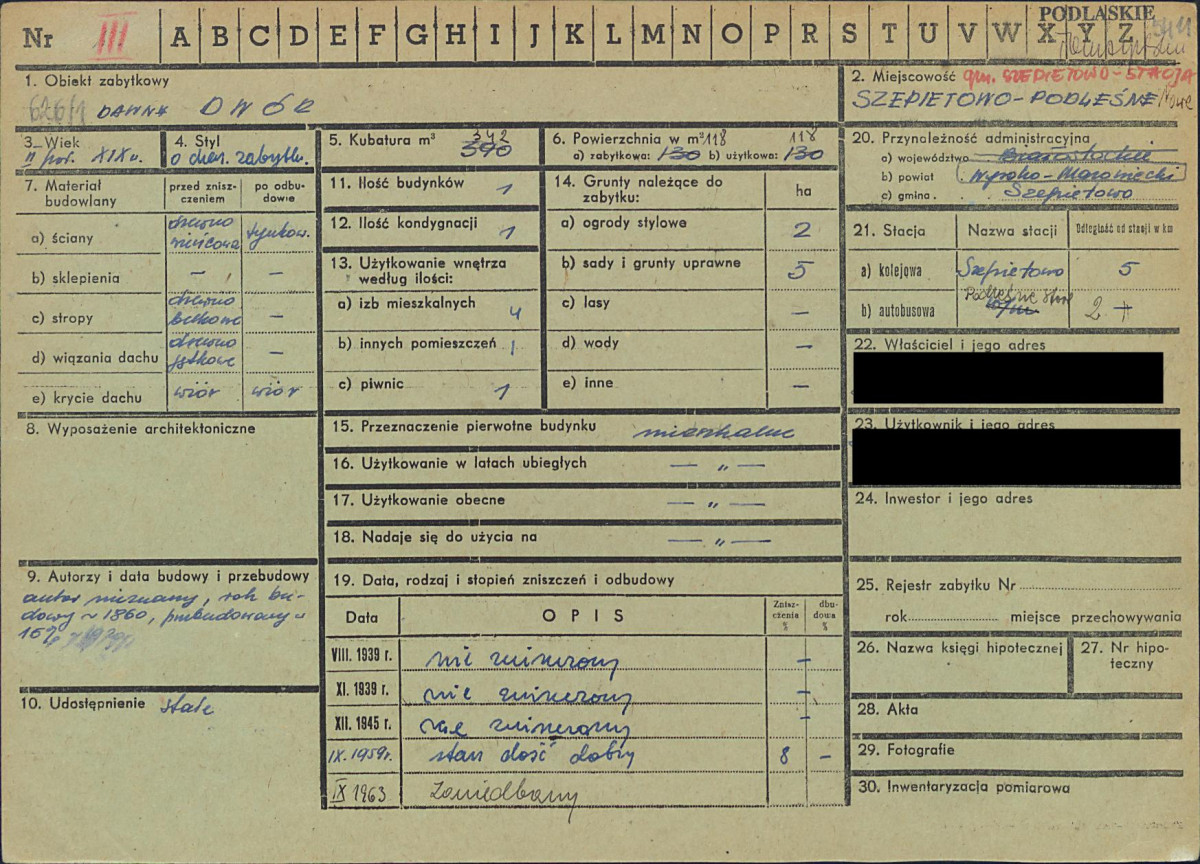 PODLASKIE
Nr III A B C D E F G H I J K L M N O P R S T U V W X Y Z
1. Obiekt zabytkowy
626/1 DAWNY DWÓR
2. Miejscowość gm. SZEPIETOWO-STACJA
SZEPIETOWO-PODLEŚNE
3. Wiek
II poł. XIX w.
4. Styl
o char. zabytk.
5. Kubatura m³ 342
390
6. Powierzchnia w m² 118 118
a) zabytkowa: 130 b) użytkowa: 130
7. Materiał budowlany
przed znisz-
czeniem
po odbu-
dowie
a) ściany drewno tynkow.
b) sklepienia — —
c) stropy drewno belkowe —
d) wiązania dachu drewno —
e) krycie dachu wiór wiór
8. Wyposażenie architektoniczne
9. Autorzy i data budowy i przebudowy
autor nieznany, rok bu-
dowy ~ 1860, przebudowany
10. Udostępnienie stałe
11. Ilość budynków 1
12. Ilość kondygnacji 1
13. Użytkowanie wnętrza
według ilości:
a) izb mieszkalnych 4
b) innych pomieszczeń 1
c) piwnic 1
14. Grunty należące do
zabytku:
ha
a) ogrody stylowe 2
b) sady i grunty uprawne 5
c) lasy —
d) wody —
e) inne —
15. Przeznaczenie pierwotne budynku mieszkalne
16. Użytkowanie w latach ubiegłych — „ —
17. Użytkowanie obecne — „ —
18. Nadaje się do użycia na — „ —
19. Data, rodzaj i stopień zniszczeń i odbudowy
Data OPIS Znisz-
czenia
% dbu-
dowa
%
VIII. 1939 r. nie zniszczony —
XI. 1939 r. nie zniszczony —
XII. 1945 r. nie zniszczony —
IX. 1959 r. stan dość dobry 8 —
IX 1963 Zaniedbany
20. Przynależność administracyjna
a) województwo Białostockie
b) powiat Wysoko-Mazowiecki
c) gmina. Szepietowo
21. Stacja Nazwa stacji Odległość od stacji w km
a) kolejowa Szepietowo 5
b) autobusowa Podleśne Stare 2
22. Właściciel i jego adres
23. Użytkownik i jego adres
24. Inwestor i jego adres
25. Rejestr zabytku Nr
rok miejsce przechowywania
26. Nazwa księgi hipotecznej
27. Nr hipo-
teczny
28. Akta
29. Fotografie
30. Inwentaryzacja pomiarowa